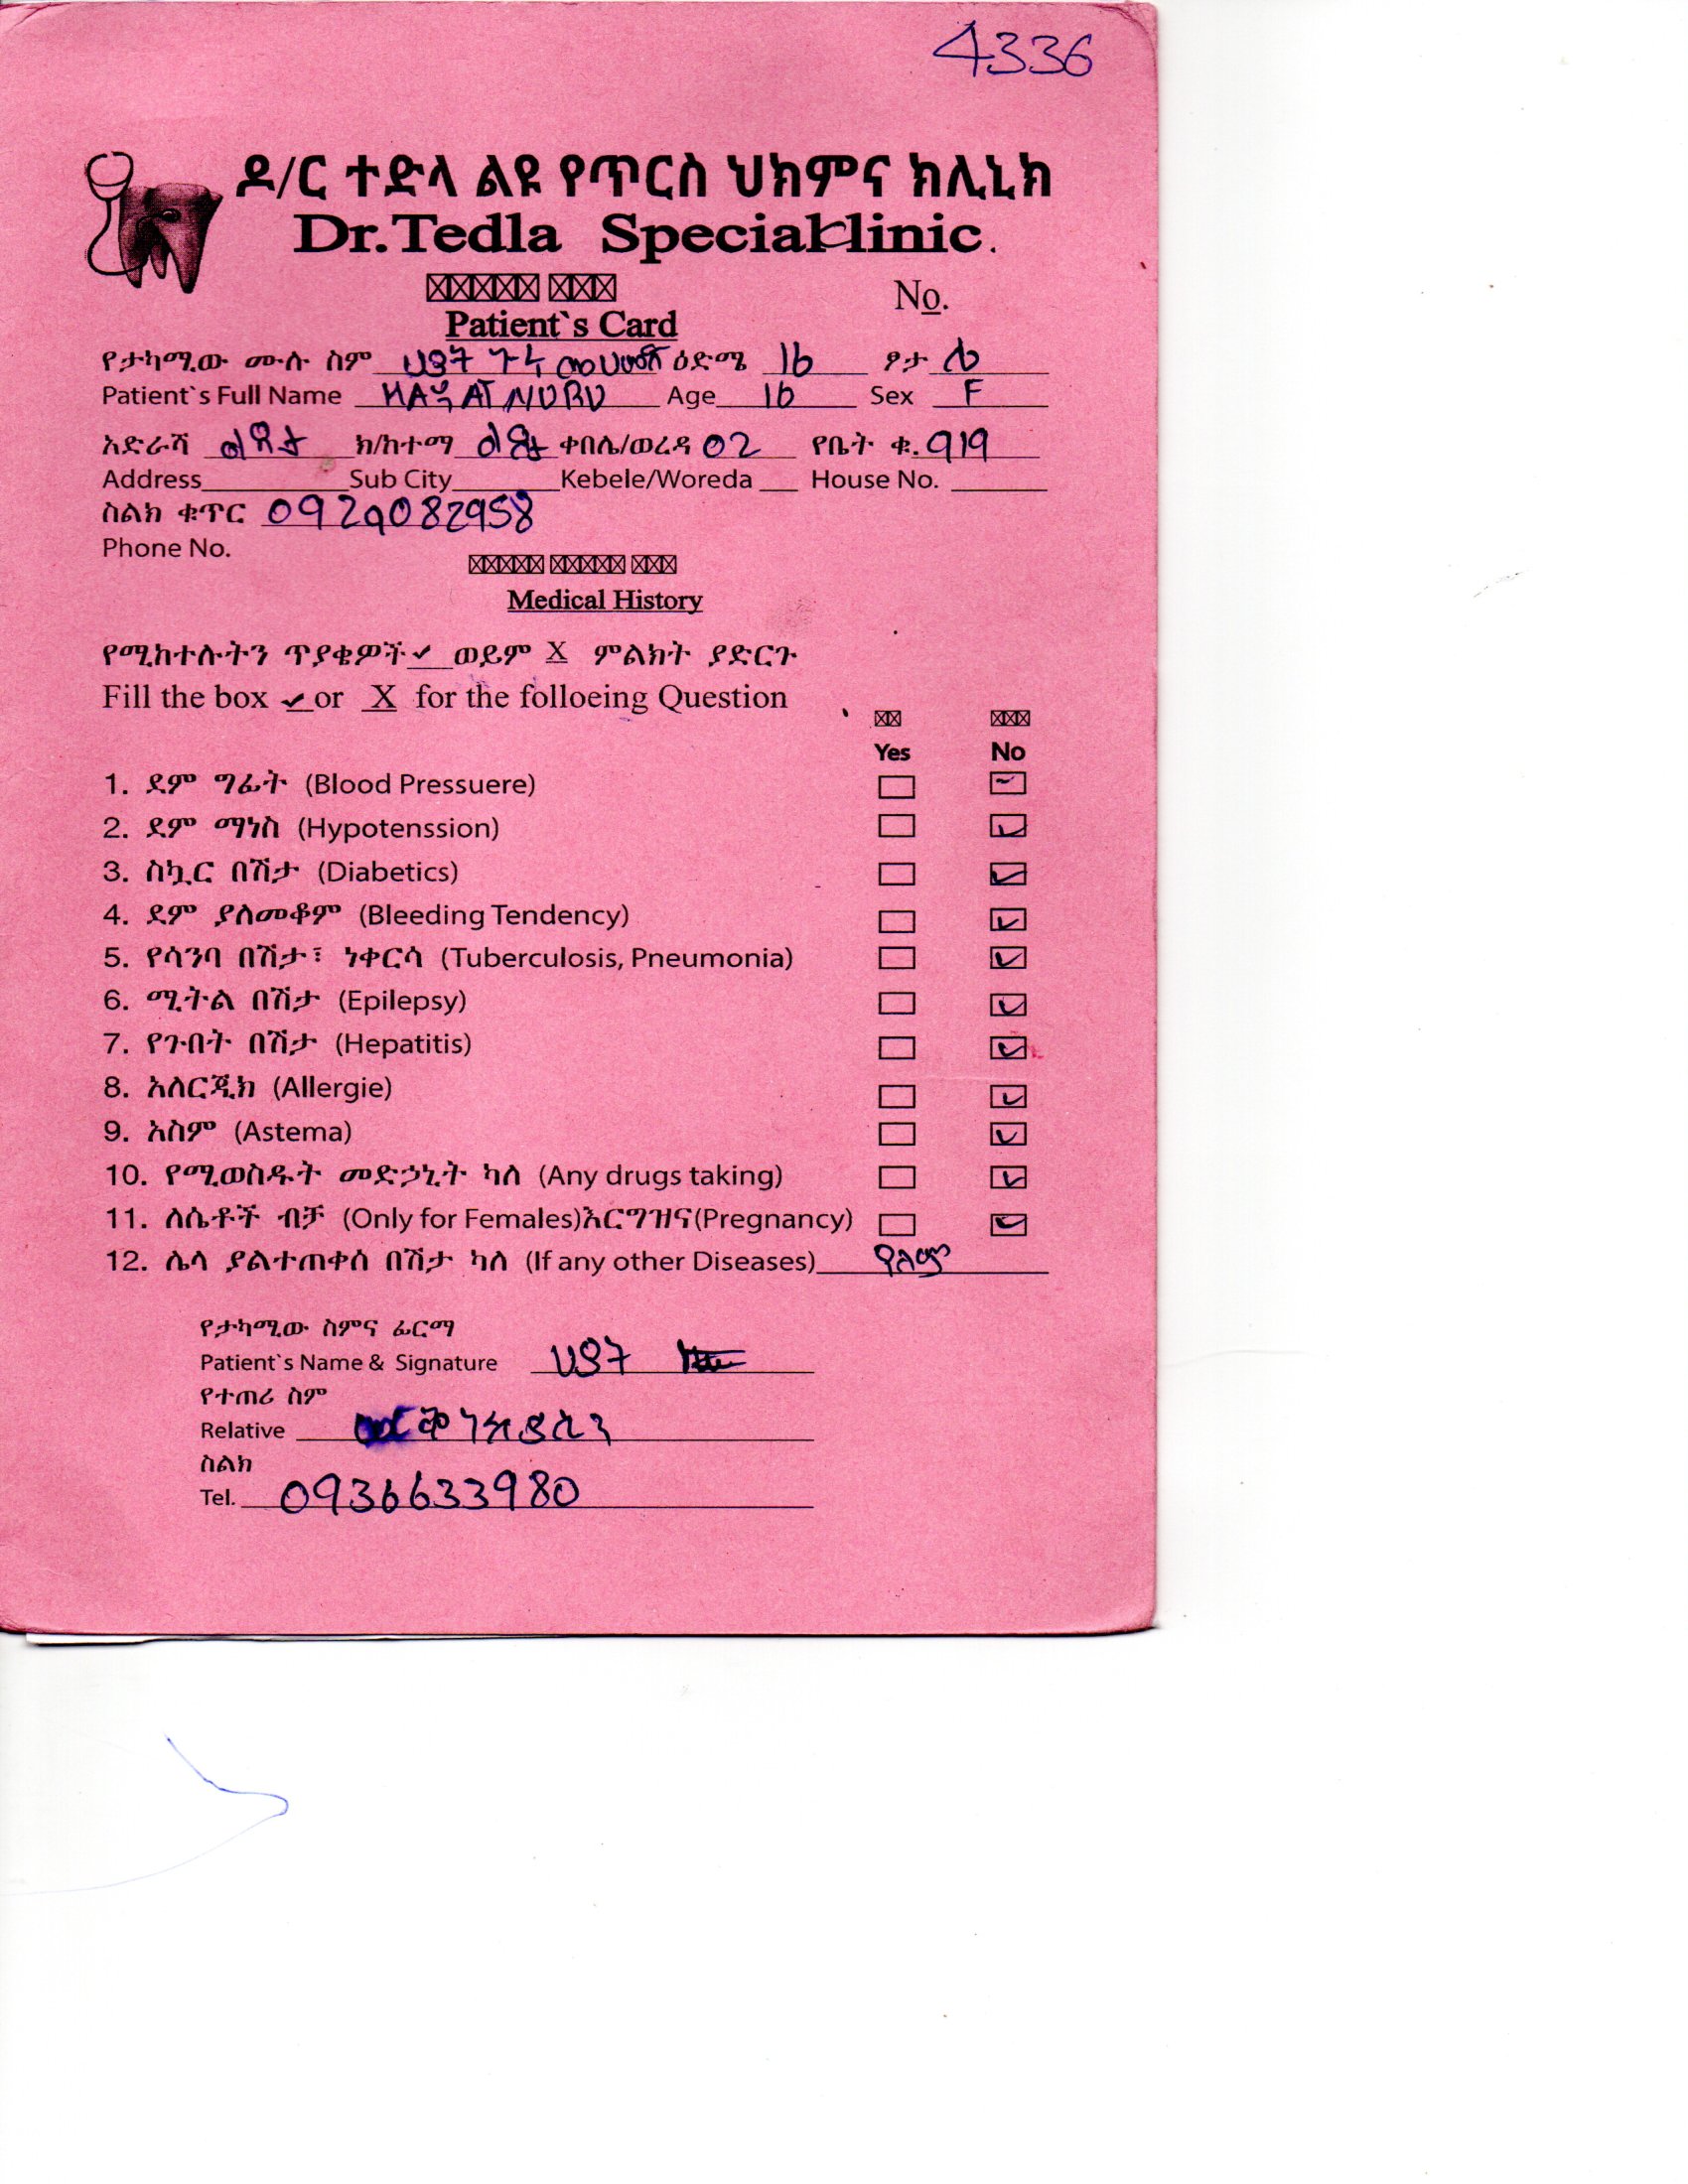 4336
ዶ/ር ተድላ ልዩ የጥርስ ህክምና ክሊኒክ
Dr.Tedla Specialclinic.
No.
Patient`s Card
የታካሚው ሙሉ ስም ሀያት ኑሩ መሀመድ ዕድሜ 16 ፆታ ሴ
Patient`s Full Name HAYAT NURU Age 16 Sex F
አድራሻ ልደታ ክ/ከተማ ልደታ ቀበሌ/ወረዳ 02 የቤት ቁ. 919
Address Sub City Kebele/Woreda House No.
ስልክ ቁጥር 0929082958
Phone No.
Medical History
የሚከተሉትን ጥያቄዎች ✔ ወይም X ምልክት ያድርጉ
Fill the box ✔ or X for the folloeing Question
Yes No
1. ደም ግፊት (Blood Pressuere)
2. ደም ማነስ (Hypotenssion)
3. ስኳር በሽታ (Diabetics)
4. ደም ያለመቆም (Bleeding Tendency)
5. የሳንባ በሽታ፣ ነቀርሳ (Tuberculosis, Pneumonia)
6. ሚትል በሽታ (Epilepsy)
7. የጉበት በሽታ (Hepatitis)
8. አለርጂክ (Allergie)
9. አስም (Astema)
10. የሚወስዱት መድኃኒት ካለ (Any drugs taking)
11. ለሴቶች ብቻ (Only for Females)እርግዝና(Pregnancy)
12. ሌላ ያልተጠቀሰ በሽታ ካለ (If any other Diseases) የለም
የታካሚው ስምና ፊርማ
Patient`s Name & Signature ሀያት
የተጠሪ ስም
Relative
ስልክ
Tel. 0936633980